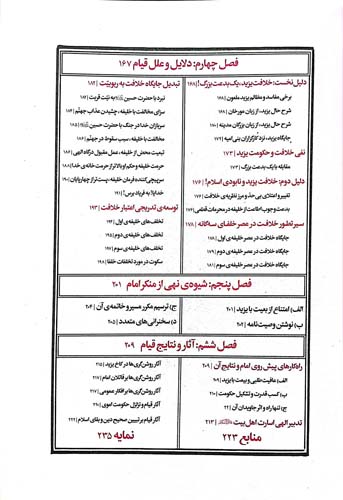 فصل چهارم: دلایل و علل قیام ۱۶۷
دلیل نخست: خلافت یزید، یک بدعت بزرگ! |۱۶۸
برخی مفاسد و مظالم یزید ملعون |۱۶۸
شرح حال یزید، از زبان مورخان |۱۶۸
شرح حال یزید، از زبان بزرگان مدینه |۱۷۰
جایگاه یزید، نزد کارگزاران بنی امیه |۱۷۲
نفی خلافت و حکومت یزید |۱۷۳
مقابله با یک بدعت بزرگ |۱۷۳
دلیل دوم: خلافت یزید و نابودی اسلام! |۱۷۶
تغییر و اعتلای بی حد و مرز نظریه‌ی خلافت |۱۷۶
بدعت وجوب اطاعت از خلیفه در محرمات قطعی |۱۷۷
سیر تطور خلافت در عصر خلفای سه‌گانه |۱۷۸
جایگاه خلافت در عصر خلیفه‌ی اول |۱۷۸
جایگاه خلافت در عصر خلیفه‌ی دوم |۱۷۹
جایگاه خلافت در عصر خلیفه‌ی سوم |۱۸۱
تبدیل جایگاه خلافت به ربوبیت |۱۸۲
نبرد با حضرت حسین به نیّت قربت |۱۸۲
سزای مخالفت با خلیفه، چشیدن عذاب جهنّم |۱۸۴
سربازان خدا در جنگ با حضرت حسین |۱۸۵
مخالفت با خلیفه، سبب سقوط در جهنّم |۱۸۶
تبعیت محض از خلیفه، عمل مقبول درگاه الهی |۱۸۶
حرمت خلیفه و حکم او بالاتر از حرمت خانه‌ی خدا |۱۸۸
سرپیچی کننده فرمان خلیفه، پست‌تر از چهارپایان |۱۹۰
خدایا! به فریاد برس! |۱۹۱
توسعه‌ی تدریجی اعتبار خلافت |۱۹۳
تخلف‌های خلیفه‌ی اول |۱۹۴
تخلف‌های خلیفه‌ی دوم |۱۹۵
تخلف‌های خلیفه‌ی سوم |۱۹۷
سکوت در مورد تخلفات خلفا |۱۹۸
فصل پنجم: شیوه‌ی نهی از منکر امام ۲۰۱
الف) امتناع از بعیت با یزید |۲۰۱
ب) نوشتن وصیت‌نامه |۲۰۲
ج) ترسیم مکرر مسیر و خاتمه‌ی آن |۲۰۴
د) سخنرانی‌های متعدد |۲۰۵
فصل ششم: آثار و نتایج قیام ۲۰۹
راه‌کارهای پیش روی امام و نتایج آن |۲۰۹
الف) عافیت طلبی و بیعت با یزید |۲۰۹
ب) کسب قدرت و تشکیل حکومت |۲۱۰
ج) تنها راه و اثر جاویدان آن |۲۱۲
تدبیر الهی اسارت اهل بیت |۲۱۳
منابع ۲۲۳
آثار روشن‌گری‌ها در کاخ یزید |۲۱۵
آثار روشن‌گری‌ها بر قاتلان امام |۲۱۶
آثار روشن‌گری‌ها بر افکار عمومی |۲۱۷
آثار قیام و تزلزل حکومت اموی |۲۲۰
آثار قیام بر تبیین صحیح دین و بقای اسلام |۲۲۲
نمایه ۲۳۵